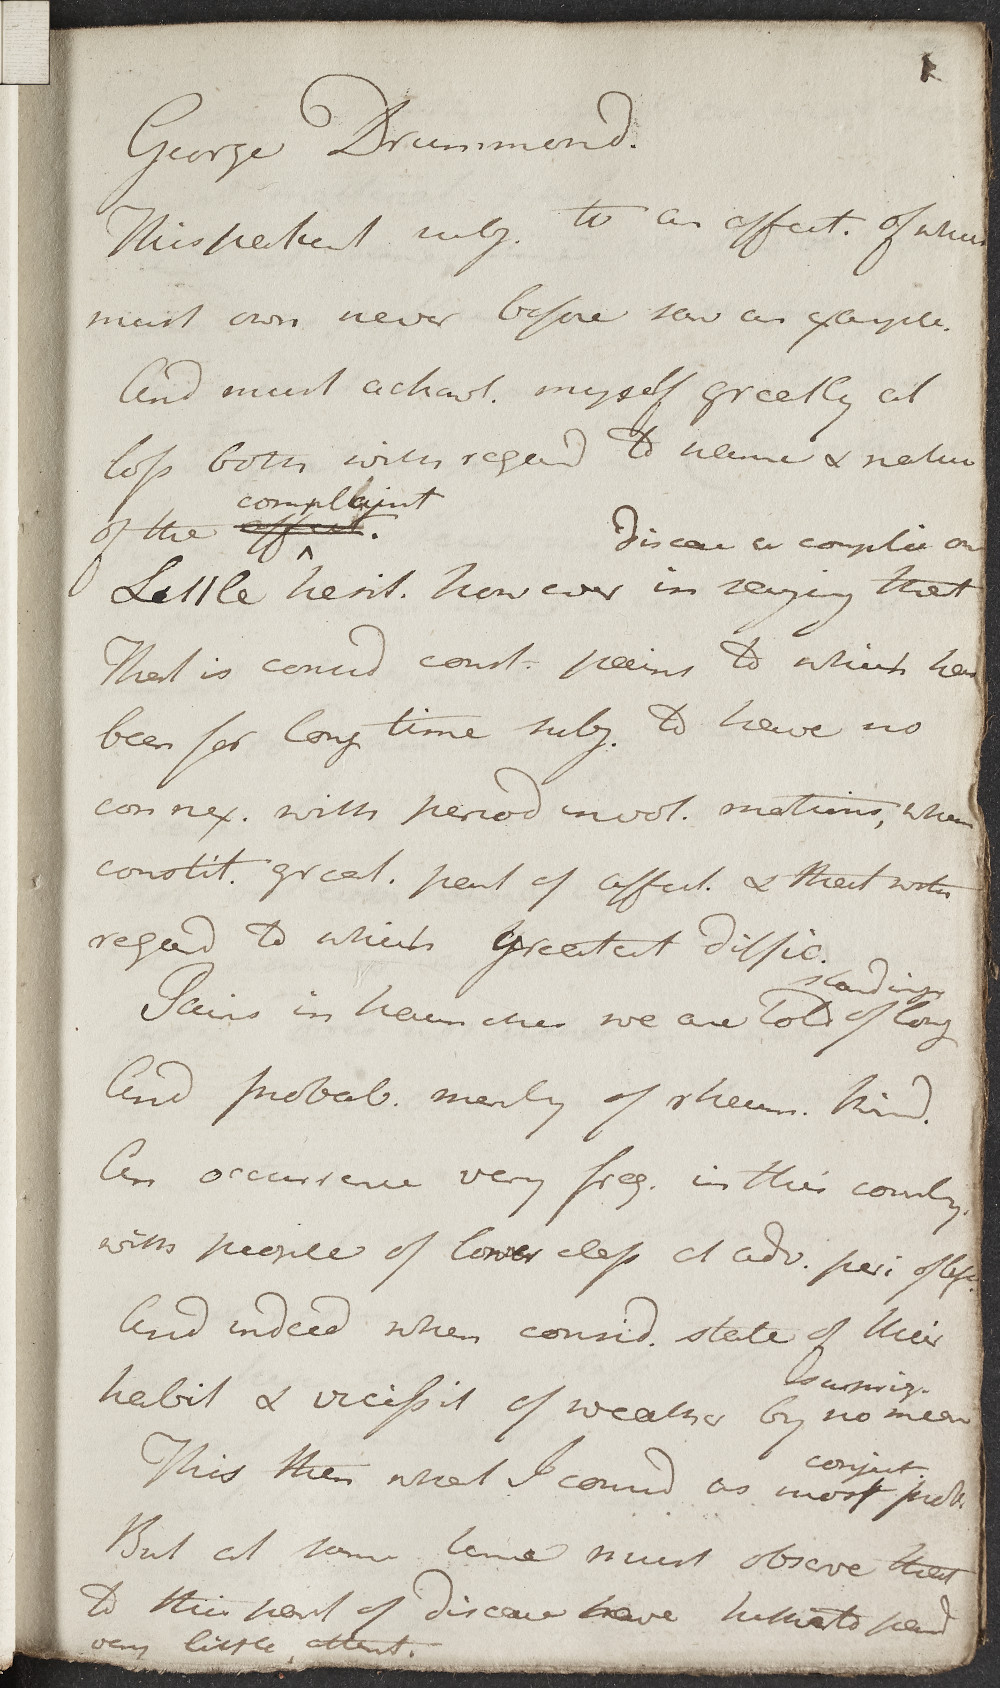 1
George Drummond.
This patient subj. to an affect. of which
must own never before saw an example.
And must acknowl. myself greatly at
loss both with regard to name & nature
of the affect. complaint
Disease a complic on
Little hesit. however in saying that
That is consid const. pains to which has
been for long time subj. to have no
connex. with period invol. motions, when
constit. great. part of affect. & that with
regard to which greatest diffic.
standing
Pains in haunches we are told of long
And probab. merely of rheum. kind.
An occurrence very freq. in this country
with people of lower class at adv. peri of life.
And indeed when consid. state of their
habit & vicissit of weather by no mean
surpriz.
conject.
This then what I consid as most prob.
But at same time must observe that
to this part of disease have hitherto paid
very little attent.